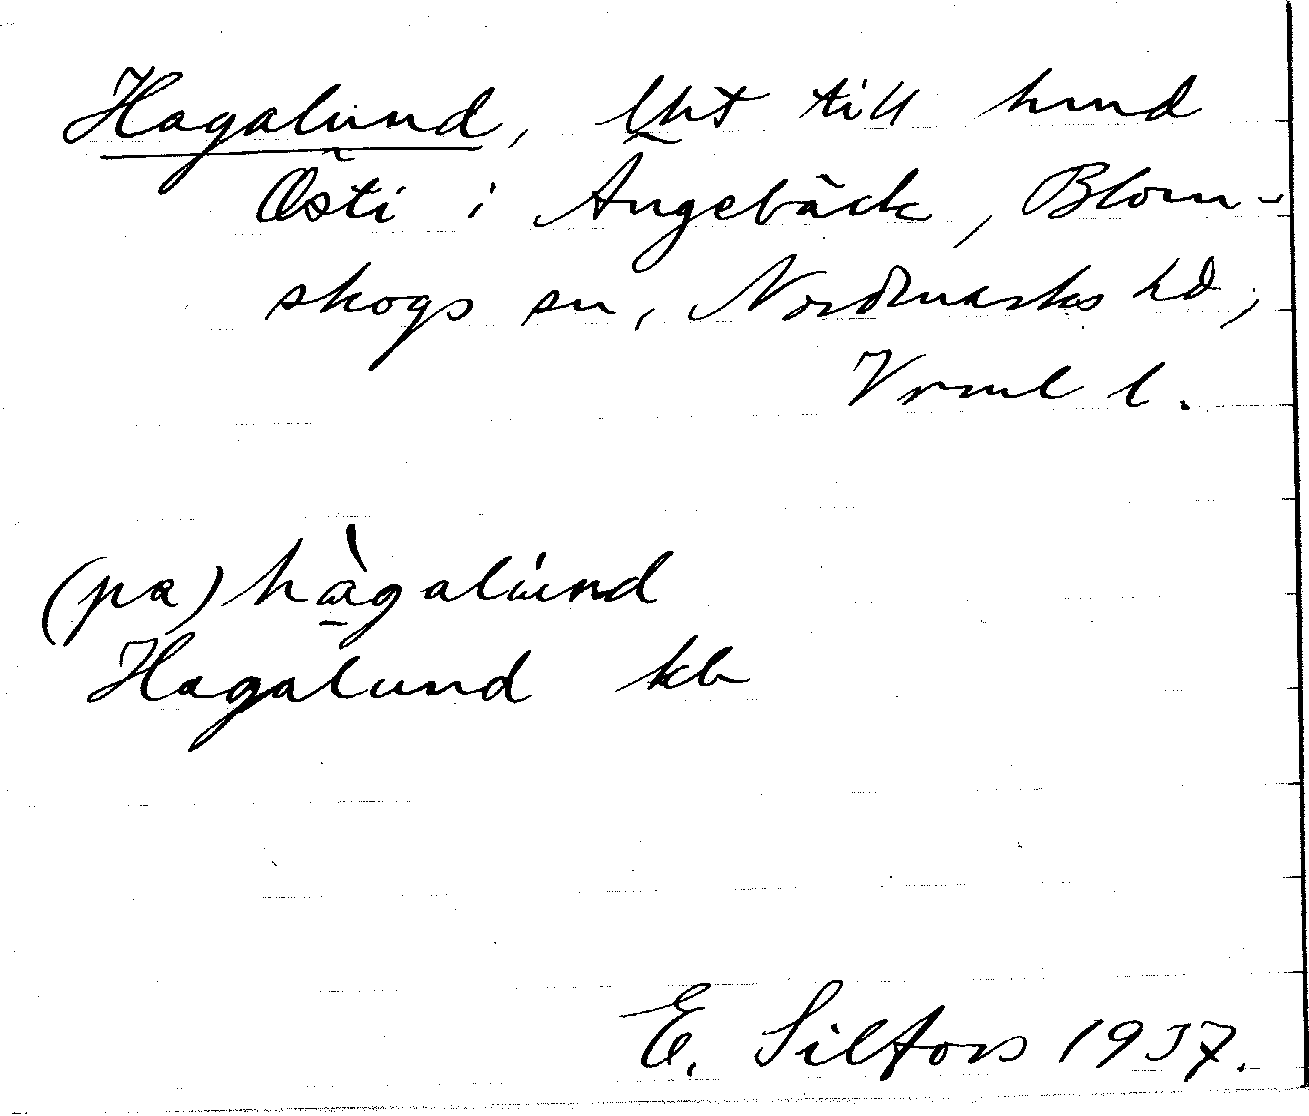 Hagalund, lht till hmd
Östi i Ängebäck, Blom-
skogs sn, Nordmarks hd,
Vrml l.
(pa) hàgalúnd
Hagalund kb
E. Silfors 1937.